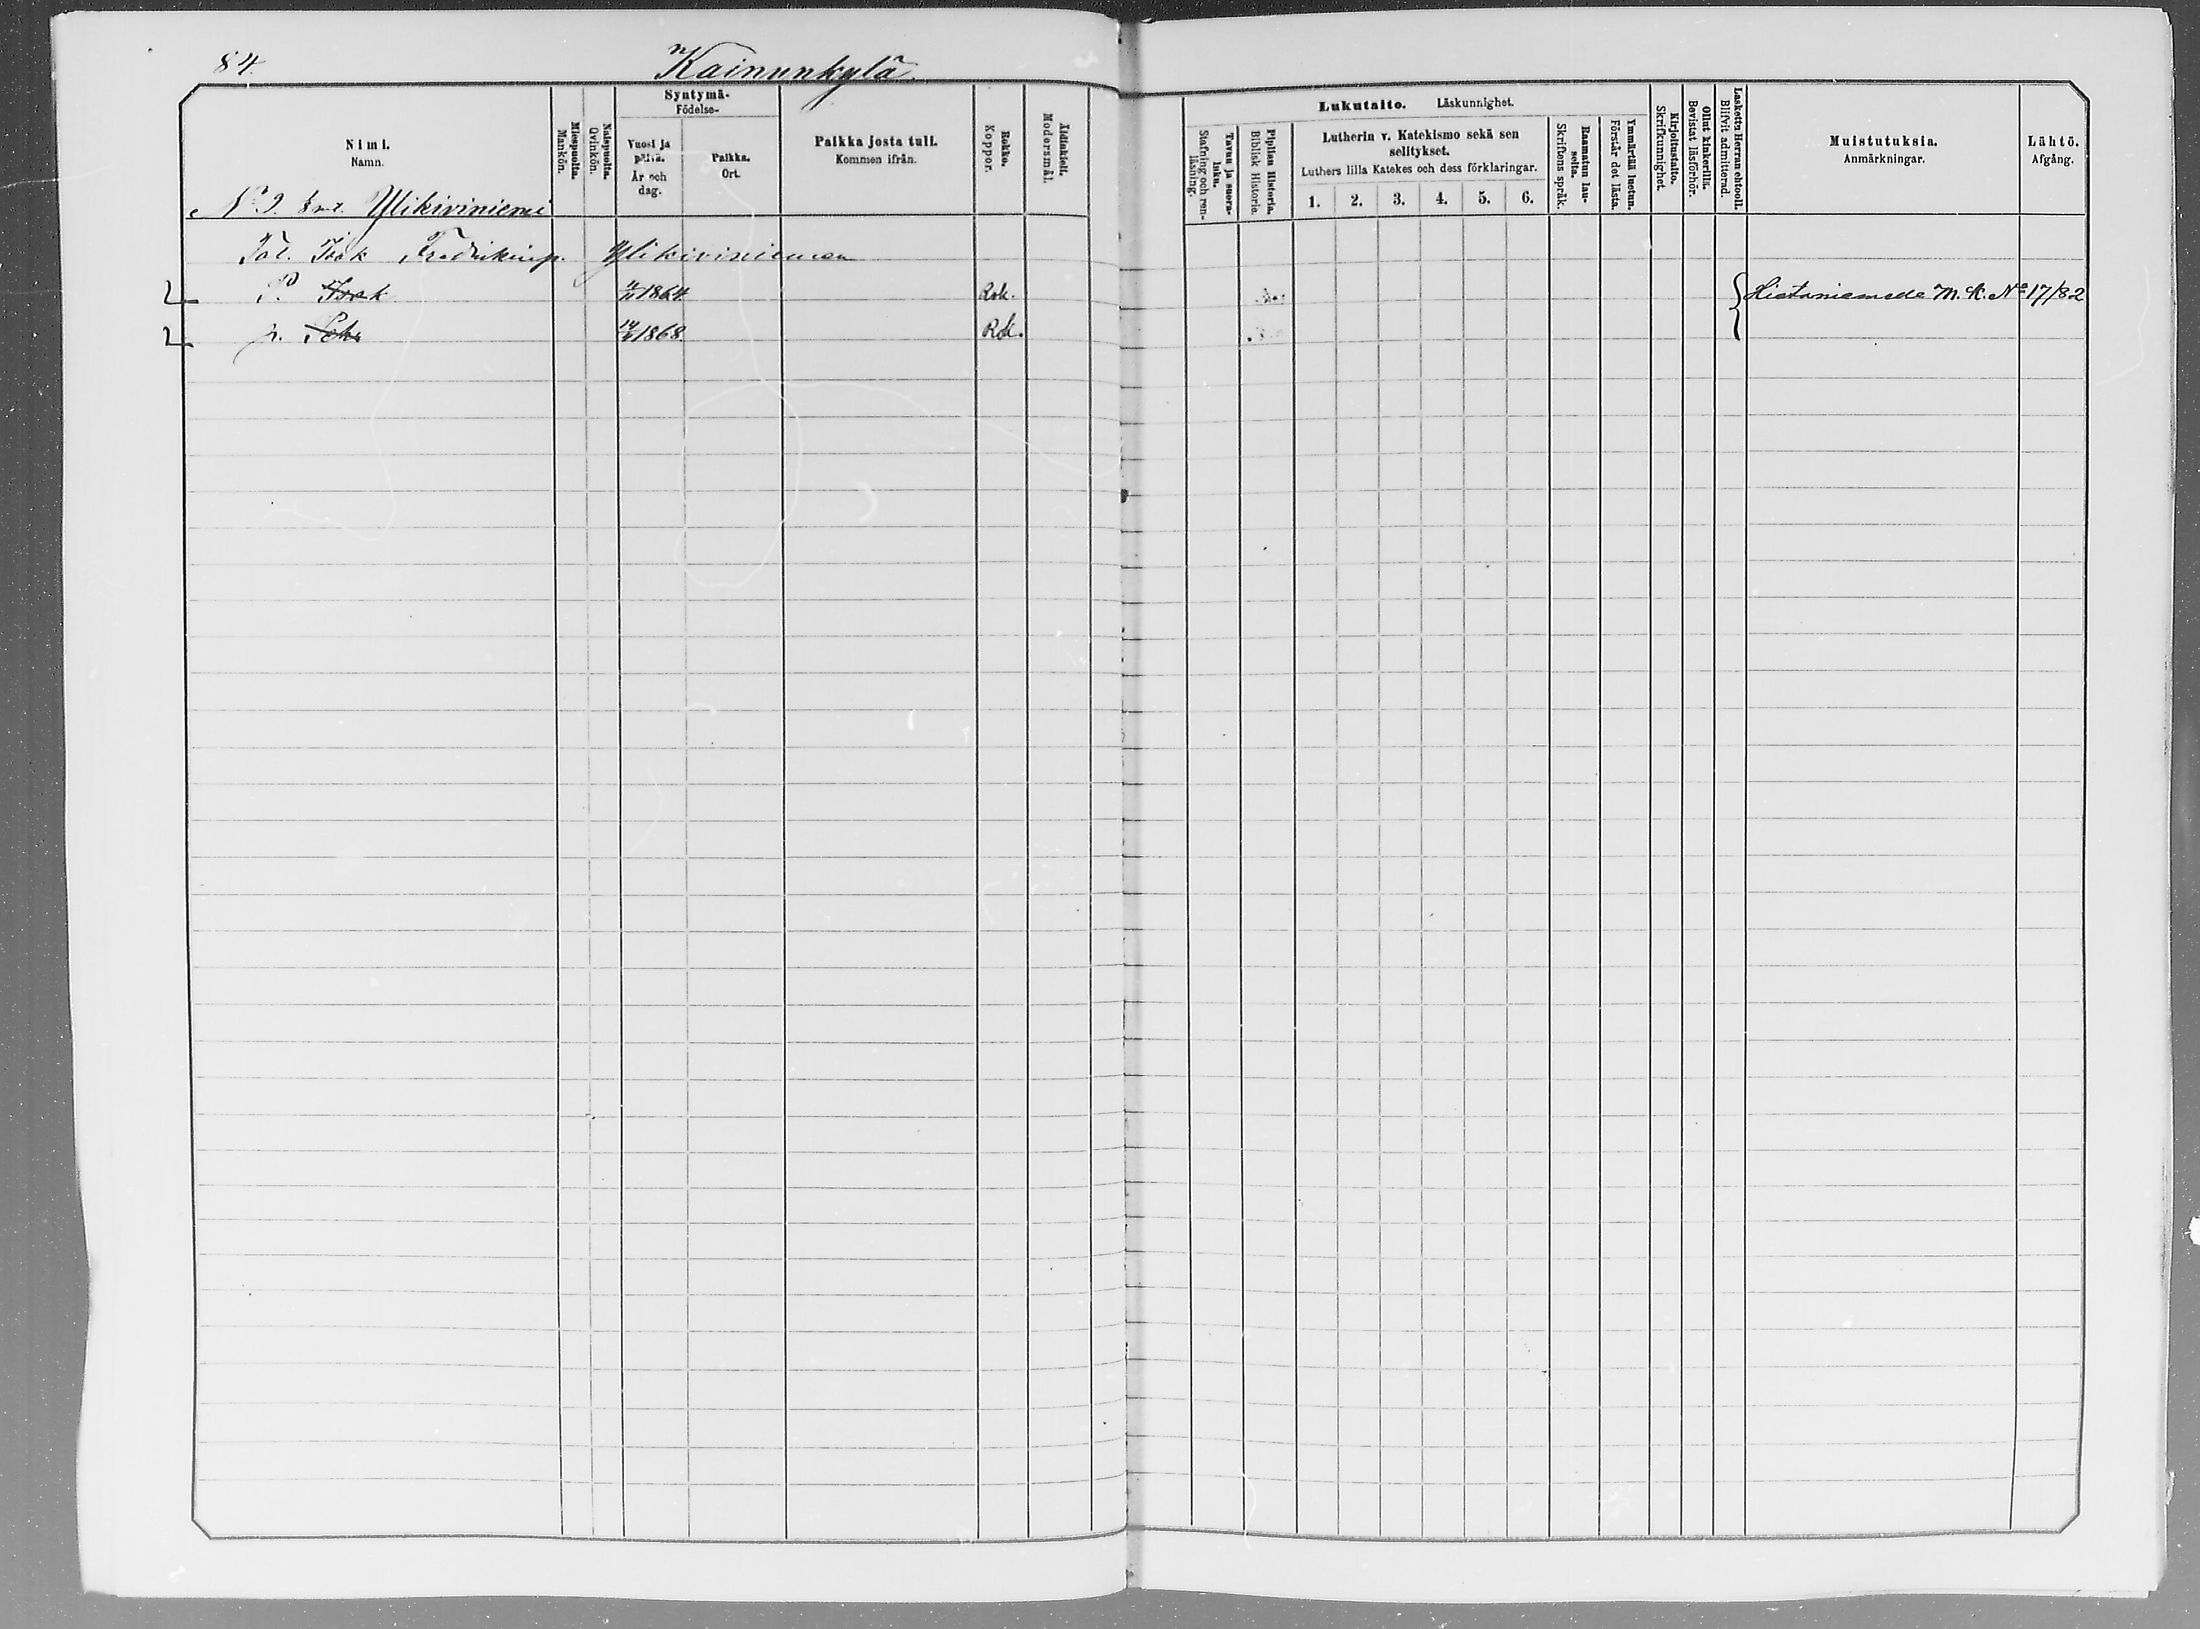 84.
Kainunkylä.
Nimi.
Namn.
Miespuolta.
Mankön.
Naispuolta.
Qvinkön.
Syntymä-
Födelse-
Vuosi ja
päivä.
År och
dag.
Paikka.
Ort.
Paikka josta tuli.
Kommen ifrån.
Rokko.
Koppor.
Äidinkieli.
Modersmål.
Lukutaito. Läskunnighet.
Tavun ja suora-
luku.
Stafning och ren-
läsning.
Piplian Historia.
Biblisk Historie.
Lutherin v. Katekismo sekä sen
selitykset.
Luthers lilla Katekes och dess förklaringar.
1. 2. 3. 4. 5. 6.
Raamatun lau-
seita.
Skriftens språk.
Ymmärtää luetun.
Förstår det lästa.
Kirjoitustaito.
Skrifkunnighet.
Ollut kinkerillä.
Bevistat läsförhör.
Laskettu Herran ehtooll.
Blifvit admitterad.
Muistutuksia.
Anmärkningar.
Lähtö.
Afgång.
No 9. Ylikiviniemi
Tal. Isak Fredrikinp. Ylikiviniemen
P. Isak 1864 Rok. Hietaniemede M. K. No 17/82
1868 Rok.